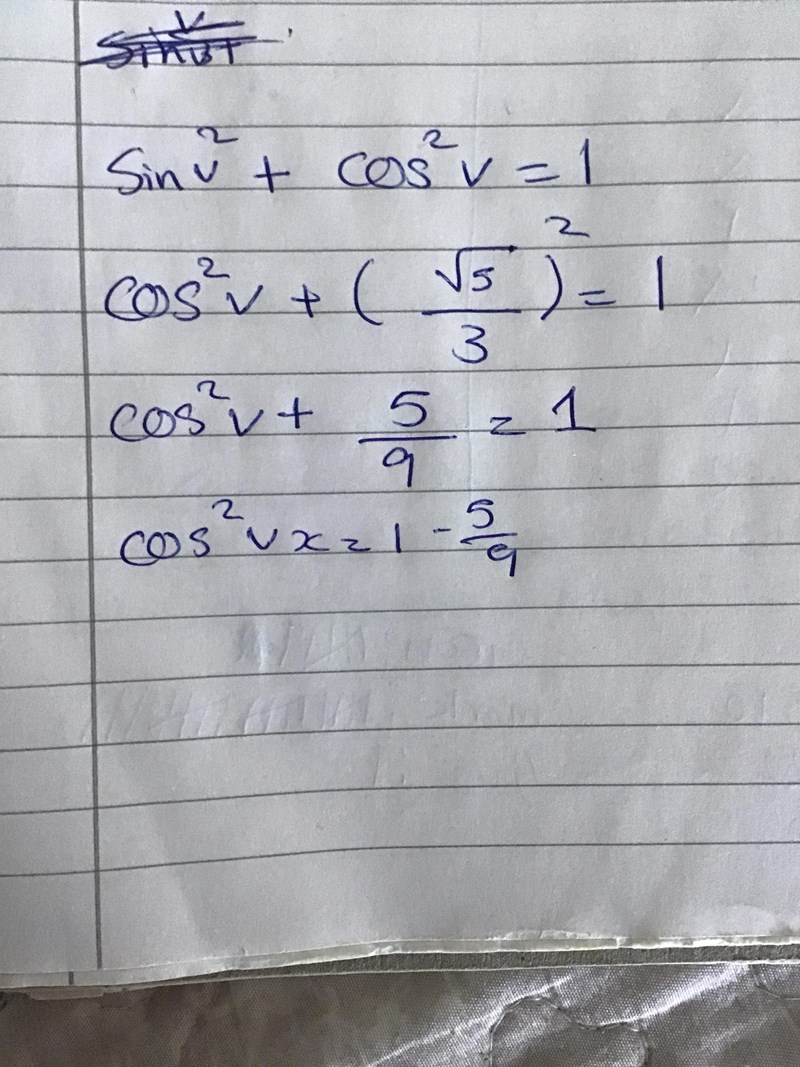 sin v² + cos² v = 1
cos² v + ( √5 / 3 )² = 1
cos² v + 5/9 = 1
cos² v x = 1 - 5/9